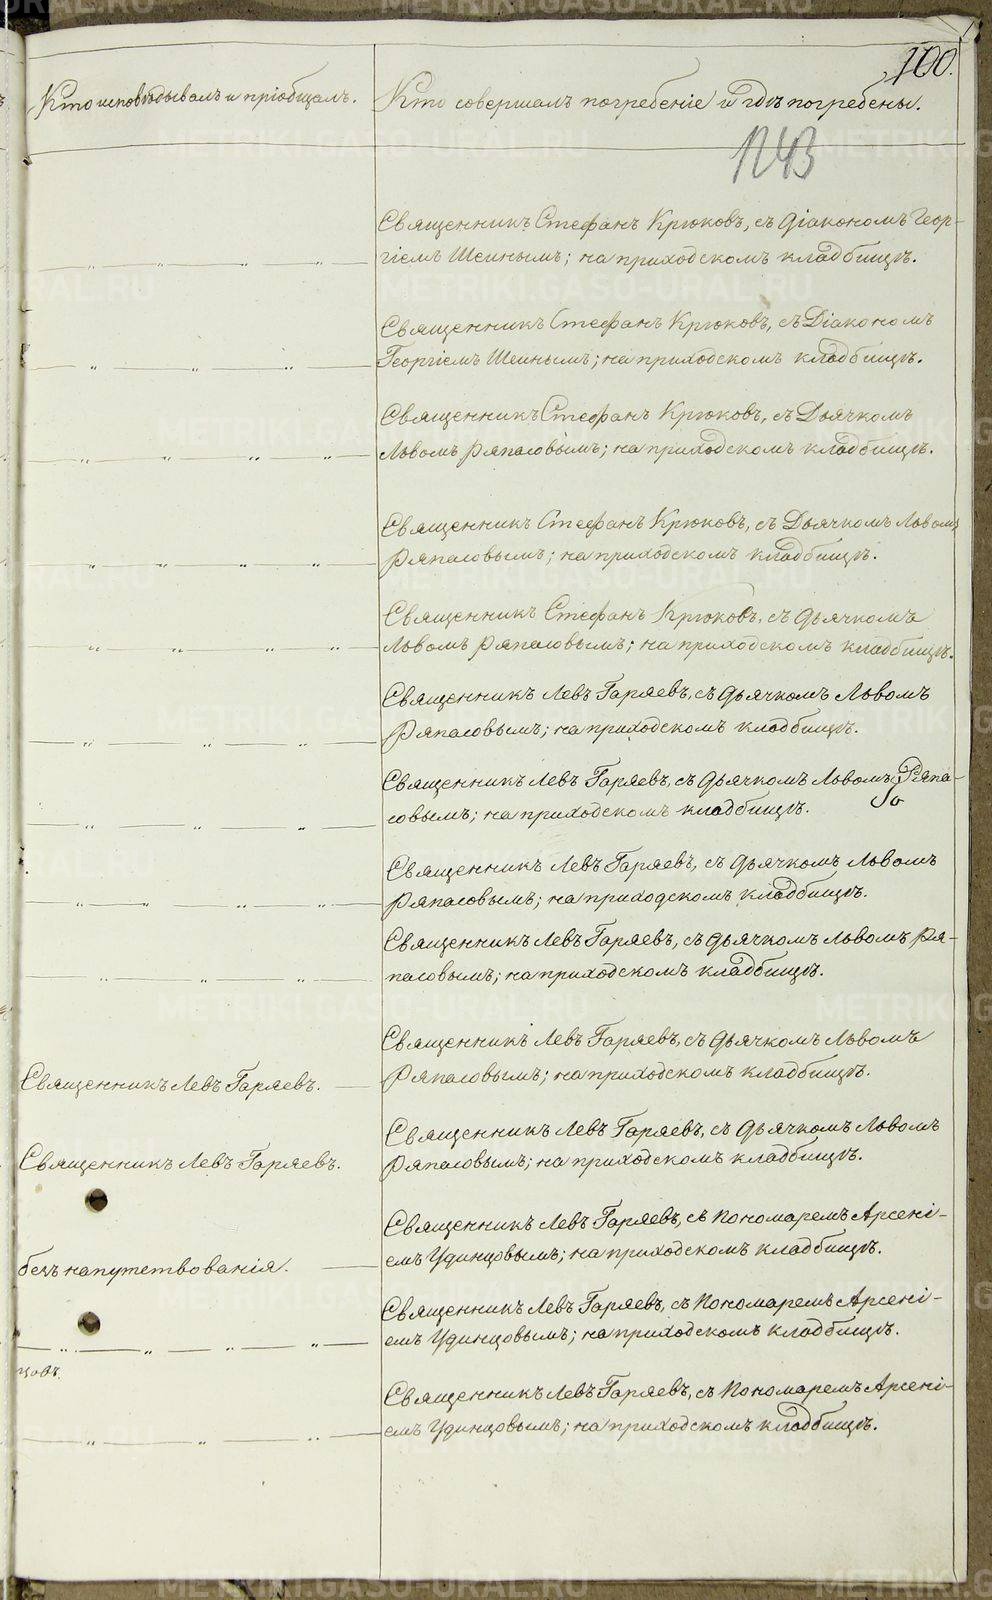 100.
Кто исповѣдывалъ и пріобщалъ.
Кто совершалъ погребеніе и гдѣ погребены.
1243
Священникъ Стефанъ Крюковъ, съ діакономъ Геор-
гіемъ Шеинымъ; на приходскомъ кладбищѣ.
Священникъ Стефанъ Крюковъ, съ Діакономъ
Георгіемъ Шеинымъ; на приходскомъ кладбищѣ.
Священникъ Стефанъ Крюковъ, съ Дьячкомъ
Львомъ Ряпасовымъ; на приходскомъ кладбищѣ.
Священникъ Стефанъ Крюковъ, съ Дьячкомъ Львомъ
Ряпасовымъ; на приходскомъ кладбищѣ.
Священникъ Стефанъ Крюковъ, съ дьячкомъ
Львомъ Ряпасовымъ; на приходскомъ кладбищѣ.
Священникъ Левъ Гаряевъ, съ дьячкомъ Львомъ
Ряпасовымъ; на приходскомъ кладбищѣ.
Священникъ Левъ Гаряевъ, съ дьячкомъ Львомъ Ряпа-
совымъ; на приходскомъ кладбищѣ.
Священникъ Левъ Гаряевъ, съ дьячкомъ Львомъ
Ряпасовымъ; на приходскомъ кладбищѣ.
Священникъ Левъ Гаряевъ, съ дьячкомъ Львомъ Ря-
пасовымъ; на приходскомъ кладбищѣ.
Священникъ Левъ Гаряевъ.
Священникъ Левъ Гаряевъ, съ дьячкомъ Львомъ
Ряпасовымъ; на приходскомъ кладбищѣ.
Священникъ Левъ Гаряевъ.
Священникъ Левъ Гаряевъ, съ дьячкомъ Львомъ
Ряпасовымъ; на приходскомъ кладбищѣ.
безъ напутствованія.
Священникъ Левъ Гаряевъ, съ Пономаремъ Арсені-
емъ Удинцовымъ; на приходскомъ кладбищѣ.
Священникъ Левъ Гаряевъ, съ Пономаремъ Арсені-
емъ Удинцовымъ; на приходскомъ кладбищѣ.
Священникъ Левъ Гаряевъ, съ Пономаремъ Арсені-
емъ Удинцовымъ; на приходскомъ кладбищѣ.
METRIKI.GASO-URAL.RU